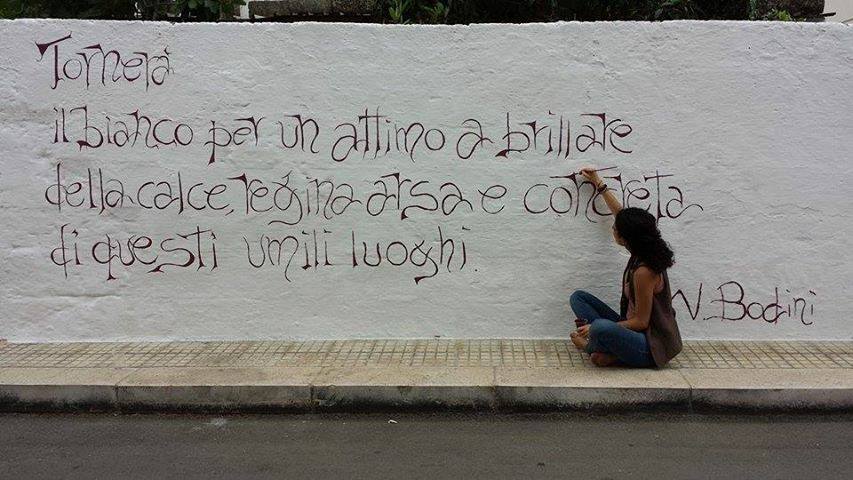 Tornerà
il bianco per un attimo a brillare
della calce, regina arsa e concreta
di questi umili luoghi.
V. Bodini